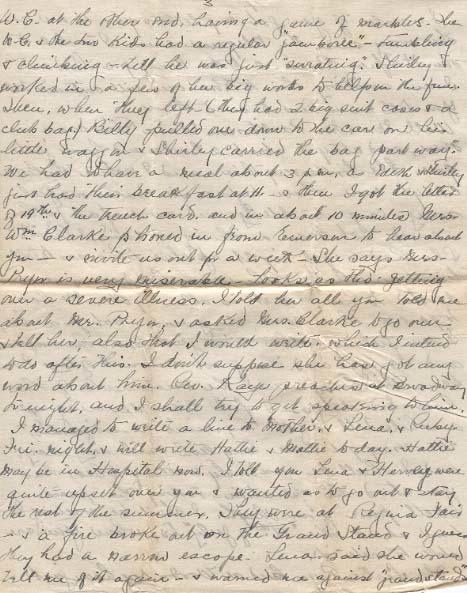 3
W.C. at the other end, having a game of marbles. The
W.C. & the two kids had a regular "jamboree" - tumbling
& climbing - till he was just "sweating". Shirley
worked in a few of her big words to help on the fun.
Then, when they left (they had 2 big suit cases & a
club bag) Billy pulled one down to the car on his
little waggon & Shirley carried the bag part way.
We had to have a meal about 3 p.m, as Edith & Shirley
just had their breakfast at 11 - & then I got the letter
of 19th & the trench card, and in about 10 minutes Mrs.
Wm Clarke phoned in from Emerson to hear about
you - & invite us out for a week - She says Mrs.
Pryor is very miserable - looks as tho' getting
over a severe illness. I told her all you told me
about Mr. Pryor, & asked Mrs. Clarke to go over
& tell her, also that I would write - which I intend
to do after this. I don't suppose she has got any
word about him. Rev. Kaye preaches at Broadway
to-night, and I shall try to get speaking to him.
I managed to write a line to Mother, & Lena, &
Fri. night, & will write Hattie & Mattie to day. Hattie
may be in Hospital now. I told you Lena & Harvey were
quite upset over you & wanted us to go out & stay
the rest of the summer. They were at Regina Fair
- & a fire broke out on the Grand Stand & I guess
they had a narrow escape. Lena said she would
tell me of it again - & warned me against "grand stands"